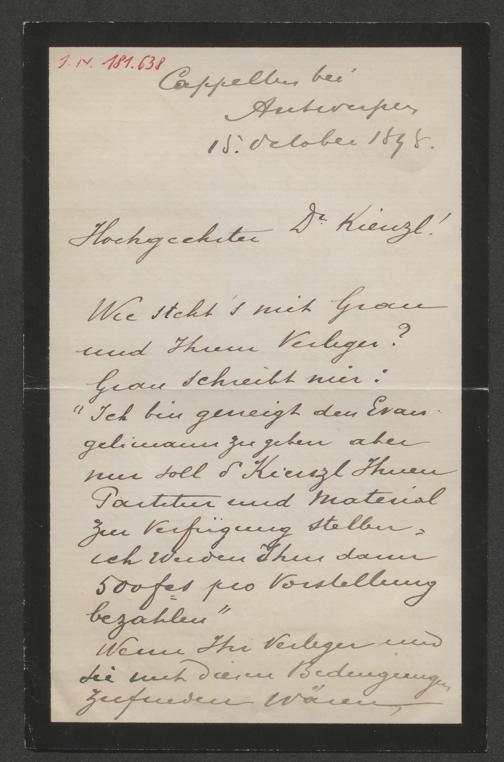 I.N. 181.638
Cappellen bei
Antwerpen
15. October 1898.
Hochgeehrter Dr Kienzl!
Wie steht's mit Grau
und Ihrem Verleger?
Grau schreibt mir:
"Ich bin geneigt den Evan-
gelimann zu geben aber
nur soll d Kienzl Ihnen
Partitur und Material
zur Verfügung stellen,
ich werden Ihm dann
500 fcs pro Vorstellung
bezahlen"
Wenn Ihr Verleger und
Sie mit diesen Bedingungen
zufrieden wären,